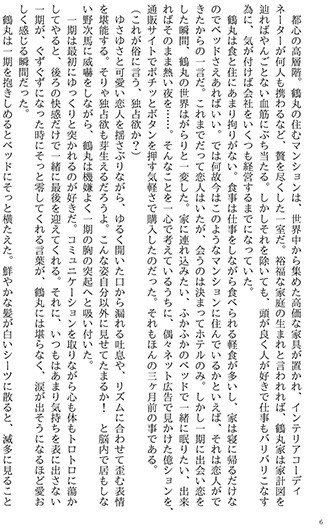 都心の高層階。鶴丸の住むマンションは、世界中から集めた高価な家具が置かれ、インテリアコーディ
ネーターが何人も携わるなど、贅を尽くした一室だ。裕福な家庭の生まれと言われれば、鶴丸家は家計図を
辿ればやんごとない血筋にぶち当たる。しかしそれを除いても、頭が良く人が好きで仕事もバリバリこなす
為に、気が付けば会社をいくつも経営するまでになっていた。
鶴丸は食と住にあまり拘りがない。食事は仕事をしながら食べられる軽食が多いし、家は寝に帰るだけな
のでベッドさえあればいい。では何故今はこのようなマンションに住んでいるかといえば、それは恋人がで
きたからの一言だ。これまでだって恋人はいたが、会うのは決まってホテルのみ。しかし一期に出会い恋を
した瞬間、鶴丸の世界はがらりと一変した。家に連れ込みたい、ふかふかのベッドで一緒に眠りたい、出来
ればそのまま熱い夜を……。そんなことを一心で考えているうちに、偶々ネット広告で見かけた億ションを、
通販サイトでポチッとボタンを押す気軽さで購入したのだった。それもほんの三ヶ月前の事である。
（これが俗に言う、独占欲か？）
ゆさゆさと可愛い恋人を揺さぶりながら、ゆるく開いた口から漏れる吐息や、リズムに合わせて歪む表情
を堪能する。そりゃ独占欲も芽生えるだろうよ。こんな姿自分以外に見せてたまるか！　と脳内で居もしな
い野次馬に威嚇をしながら、鶴丸は機嫌よく一期の胸の突起へと吸い付いた。
一期は最初にゆっくりと突かれるのが好きだ。コミュニケーションを取りながら心も体もトロトロに蕩か
してやると、後ろの快感だけで一緒に最後を迎えてくれる。それに、いつもはあまり気持ちを表に出さない
一期が、ぐずぐずになった時にそっと零してくれる言葉が、鶴丸には堪らなく、涙が出そうになるほど愛お
しく感じる瞬間だった。
鶴丸は一期を抱きしめるとベッドにそっと横たえた。鮮やかな髪が白いシーツに散ると、滅多に見ること
6